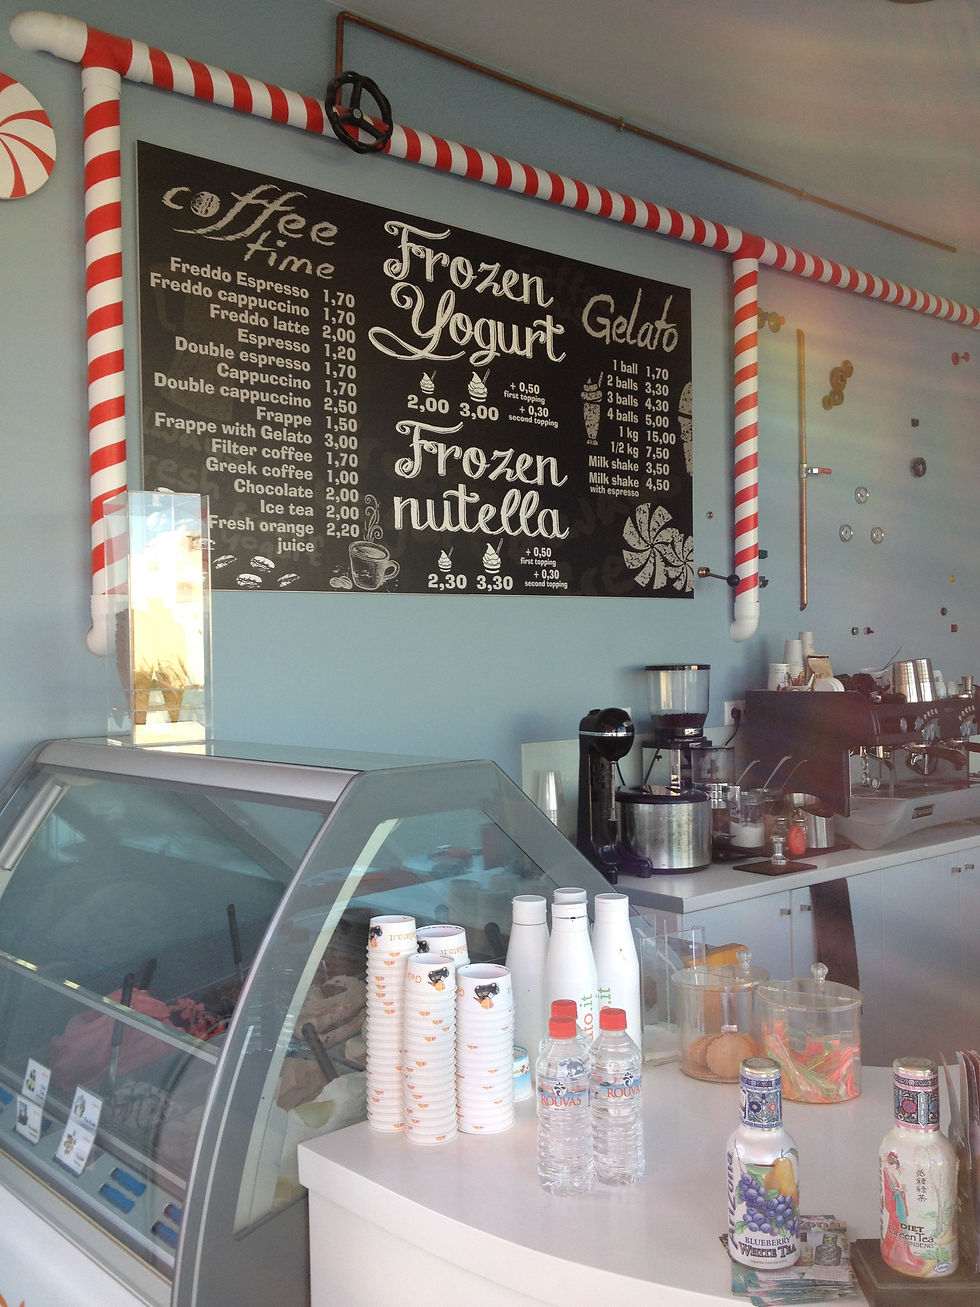 coffee
time
Freddo Espresso 1,70
Freddo cappuccino 1,70
Freddo latte 2,00
Espresso 1,20
Double espresso 1,70
Cappuccino 1,70
Double cappuccino 2,50
Frappe 1,50
Frappe with Gelato 3,00
Filter coffee 1,70
Greek coffee 1,00
Chocolate 2,00
Ice tea 2,00
Fresh orange 2,20
juice
Frozen
Yogurt
2,00 3,00
+ 0,50
first topping
+ 0,30
second topping
Frozen
nutella
2,30 3,30
+ 0,50
first topping
+ 0,30
second topping
Gelato
1 ball 1,70
2 balls 3,30
3 balls 4,30
4 balls 5,00
1 kg 15,00
1/2 kg 7,50
Milk shake 3,50
Milk shake 4,50
with espresso
ROUVAS
ROUVAS
BLUEBERRY
WHITE TEA
低糖綠茶
DIET
Green Tea
GINSENG